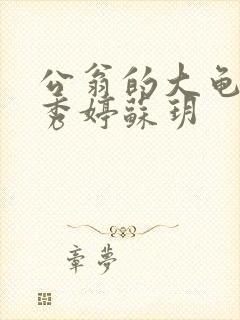 公翁的大龟
秀婷蘇玥
章夢